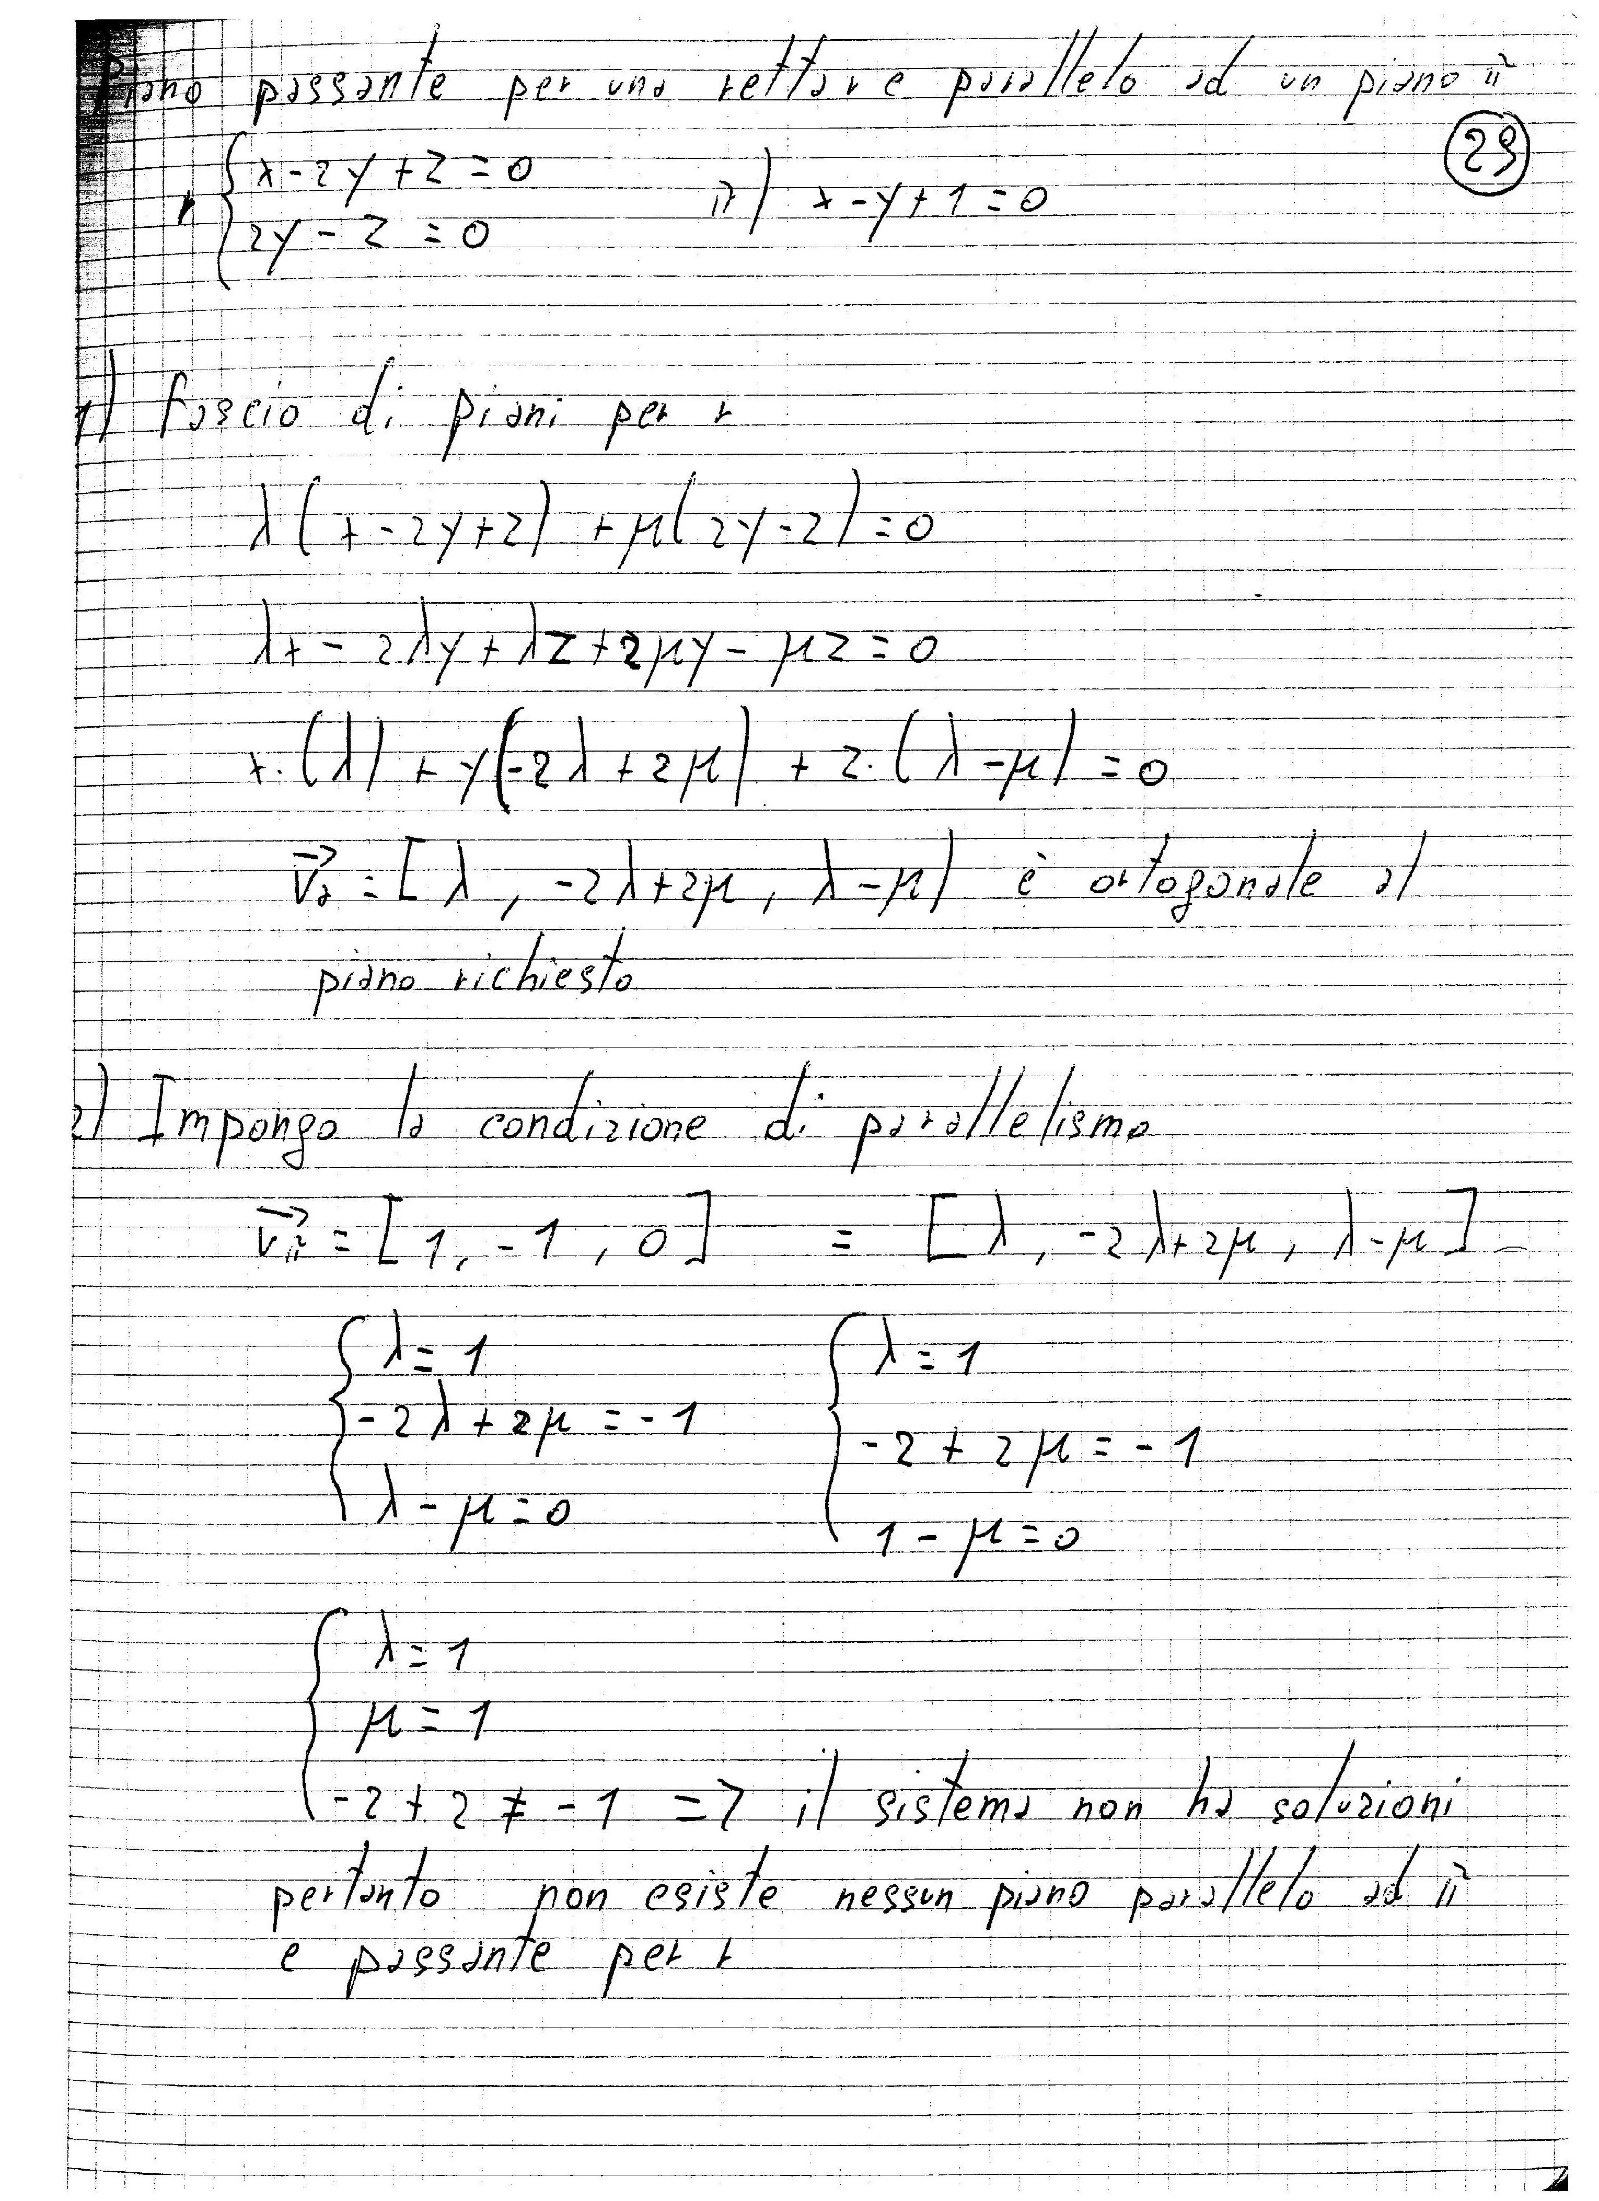 Piano passante per una retta r e parallelo ad un piano π
(29)
r { x-2y+z=0
2y-z=0
π) x-y+1=0
1) fascio di piani per r
λ(x-2y+z)+μ(2y-z)=0
λx-2λy+λz+2μy-μz=0
x·(λ)+y(-2λ+2μ)+z·(λ-μ)=0
v⃗a=[λ, -2λ+2μ, λ-μ) è ortogonale al
piano richiesto
2) Impongo la condizione di parallelismo
v⃗π=[1,-1,0] = [λ, -2λ+2μ, λ-μ]
{ λ=1
-2λ+2μ=-1
λ-μ=0
{ λ=1
-2+2μ=-1
1-μ=0
{ λ=1
μ=1
-2+2≠-1 => il sistema non ha soluzioni
pertanto non esiste nessun piano parallelo ad π
e passante per r